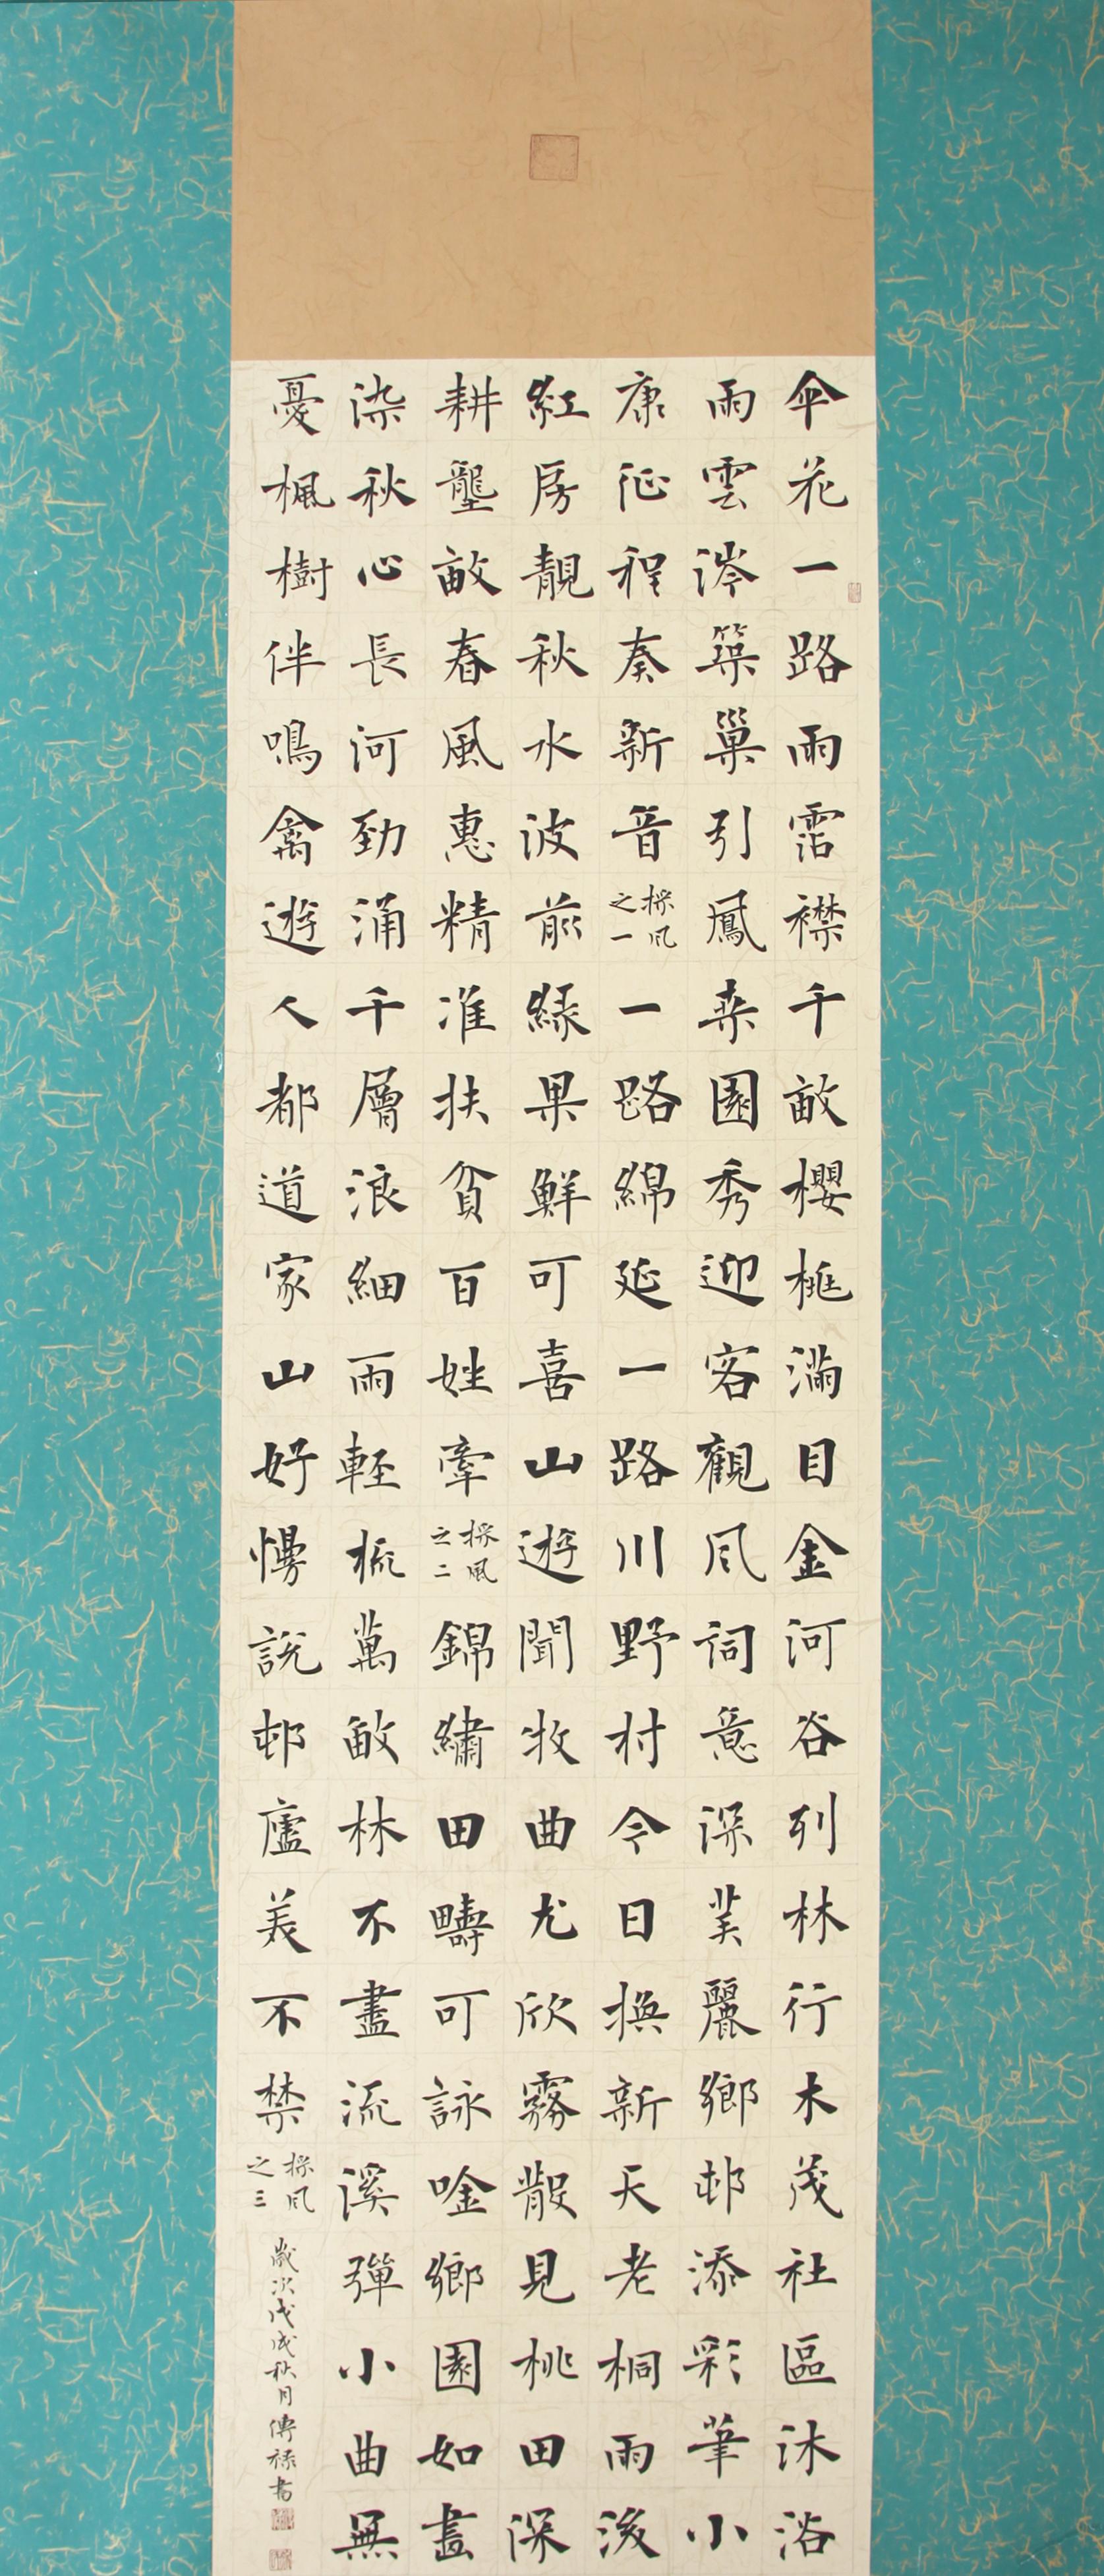 伞花一路雨霑襟千畝櫻桃滿目金河谷列林行木茂社區沐浴
雨雲涔築巢引鳳桑園秀迎客觀風詞意深美麗鄉邨添彩筆小
康征程奏新音採風之一一路綿延一路川野村今日換新天老桐雨後
紅房靚秋水波前綠果鮮可喜山遊聞牧曲尤欣霧散見桃田深
耕壟畝春風惠精准扶貧百姓牽採風之二錦繡田疇可詠唫鄉園如畫
染秋心長河勁涌千層浪細雨輕梳萬畝林不盡流溪彈小曲無
憂楓樹伴鳴禽遊人都道家山好慢說邨廬美不禁採風之三
歲次戊戌秋月傳祿書